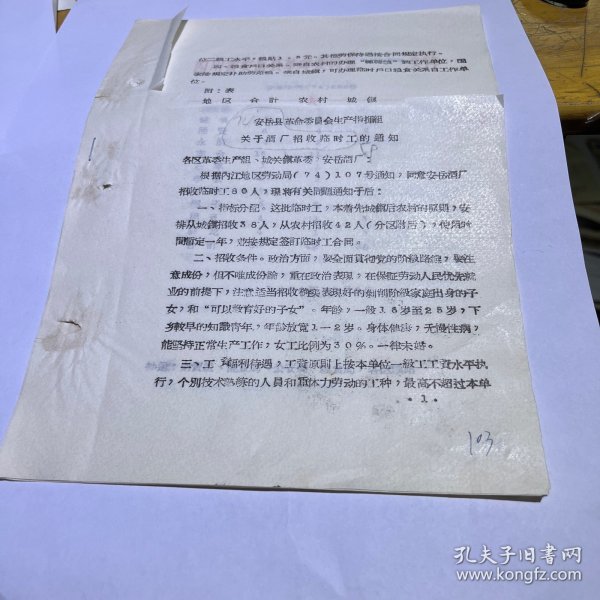 位二级工水平，粮贴1.5元。其他劳保待遇按合同规定执行。
四、粮食户口关系。来自农村的办理" "到工作单位，国
家按规定补助劳差粮。来自城镇，可办理临时户口粮食关系自工作单
位。
附：表
地区 合计 农村 城镇
安岳县革命委员会生产指挥组
关于酒厂招收临时工的通知
各区革委生产组、城关镇革委，安岳酒厂：
根据内江地区劳动局(74)107号通知，同意安岳酒厂
招收临时工80人，现将有关问题通知于后：
一、指标分配。这批临时工，本着先城镇后农村的原则，安
排从城镇招收38人，从农村招收42人(分区附后)，使用时
间暂定一年，并按规定签订临时工合同。
二、招收条件。政治方面，要全面贯彻党的阶级路线，要注
意成份，但不唯成份论，重在政治表现，在保证劳动人民优先就
业的前提下，注意适当招收确实表现好的剥削阶级家庭出身的子
女，和"可以教育好的子女"。年龄，一般16岁至25岁，下
乡较早的知识青年，年龄放宽1—2岁。身体健康，无慢性病，
能坚持正常生产工作，女工比例为30%。一律未婚。
三、工资福利待遇，工资原则上按本单位一级工工资水平执
行，个别技术熟练的人员和重体力劳动的工种，最高不超过本单
·1·
103
孔夫子旧书网
www.kongfz.com